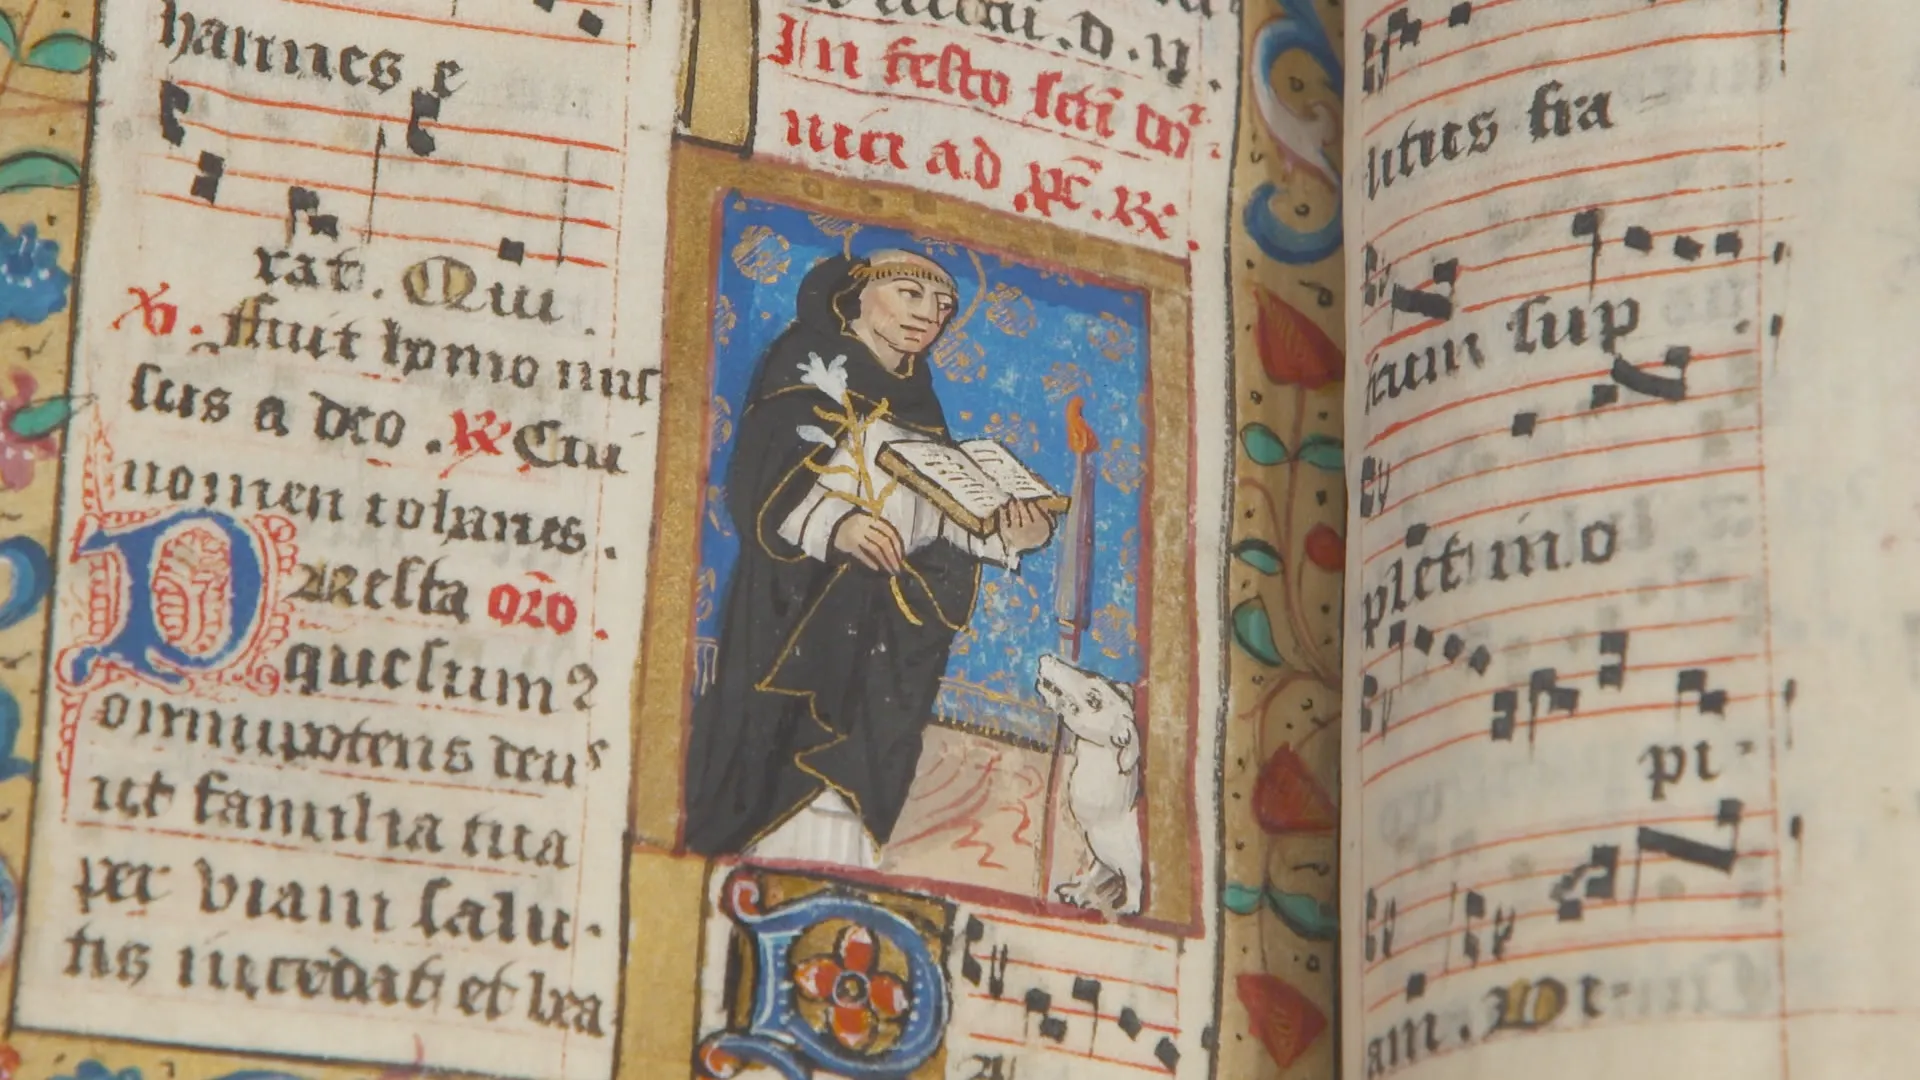 hannes e
rat. Qui.
V. Fuit homo mis
sus a deo. R Cui
nomen iohanes.
Presta oro.
quesum
omnipotens deus
ut familia tua
per viam salu
tis incedat et bea
In festo scti do
nici ad pc. R.
litus fra
icum sup
plet in.o
pi
am. Vt